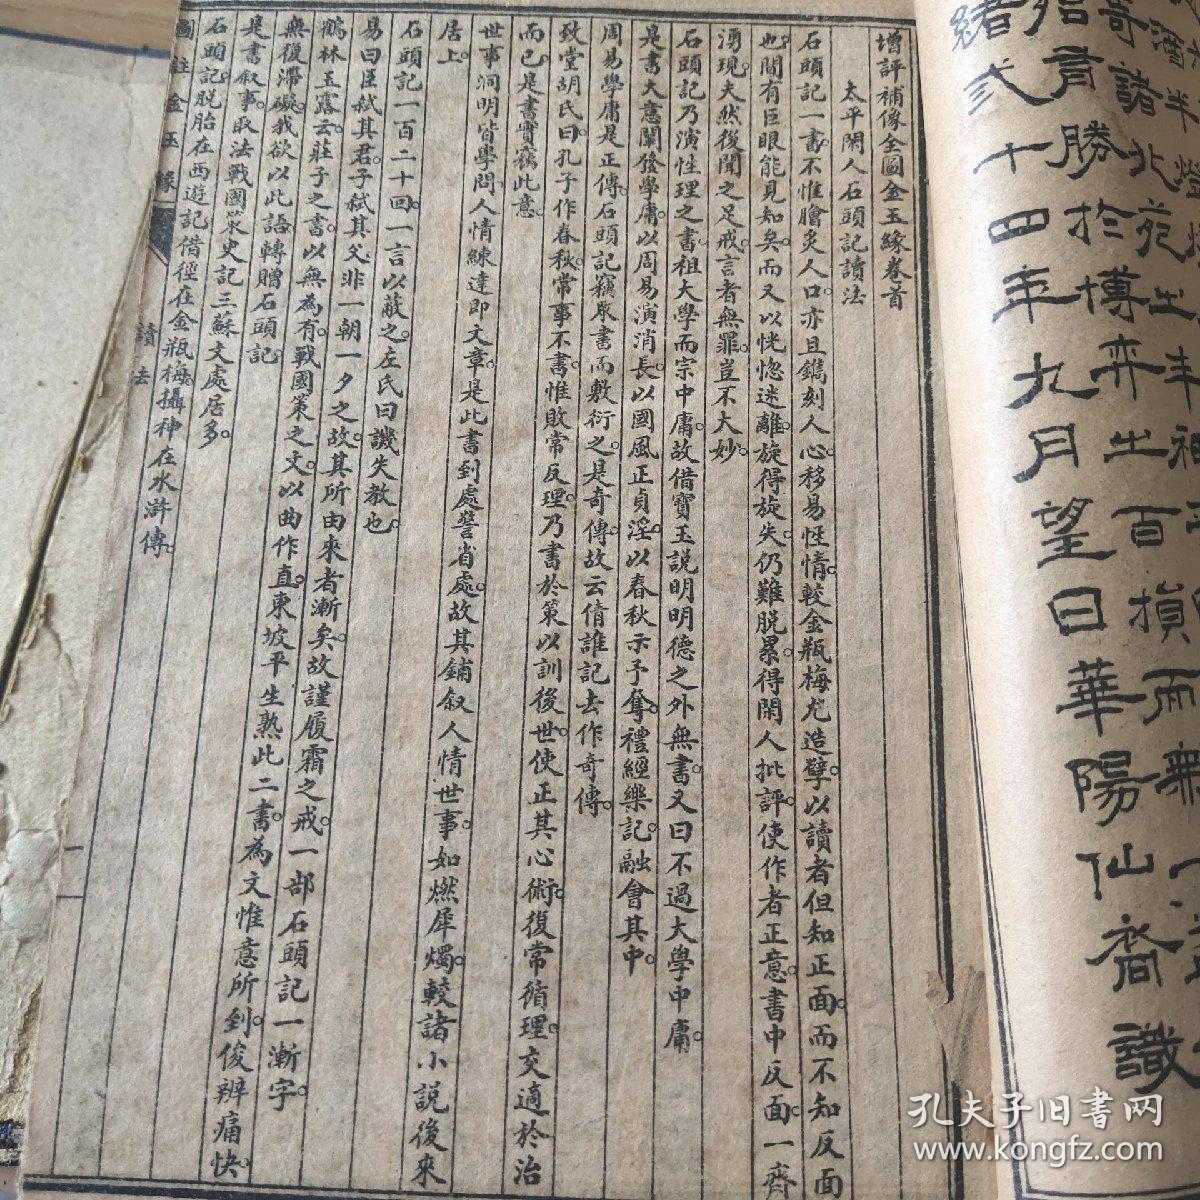 諸北苑之半神
奇
指育勝於博弈之百損而無一
緒弍十四年九月望日華陽仙裔識
增評補像全圖金玉緣卷首
太平閑人石頭記讀法
石頭記一書不惟膾炙人口亦且鐫刻人心移易性情較金瓶梅尤造孽以讀者但知正面而不知反面
也間有巨眼能見知矣而又以恍惚迷離旋得旋失仍難脫累得閑人批評使作者正意書中反面一齊
湧現夫然後聞之足戒言者無罪豈不大妙
石頭記乃演性理之書祖大學而宗中庸故借寶玉說明明德之外無書又曰不過大學中庸
是書大意闡發學庸以周易演消長以國風正貞淫以春秋示予奪禮經樂記融會其中
周易學庸是正傳石頭記竊眾書而敷衍之是奇傳故云倩誰記去作奇傳
致堂胡氏曰孔子作春秋常事不書惟敗常反理乃書於策以訓後世使正其心術復常循理交適於治
而已是書實竊此意
世事洞明皆學問人情練達即文章是此書到處警省處故其鋪叙人情世事如燃犀燭較諸小說後來
居上
石頭記一百二十回一言以蔽之左氏曰譏失教也
易曰臣弒其君子弒其父非一朝一夕之故其所由來者漸矣故謹履霜之戒一部石頭記一漸字
鶴林玉露云莊子之書以無為有戰國策之文以曲作直東坡平生熟此二書為文惟意所到俊辨痛快
無復滯礙我欲以此語轉贈石頭記
是書叙事取法戰國策史記三蘇文處居多
石頭記脫胎在西遊記借徑在金瓶梅攝神在水滸傳
圖註金玉緣
讀法
一
孔夫子旧書网
www.kongfz.com